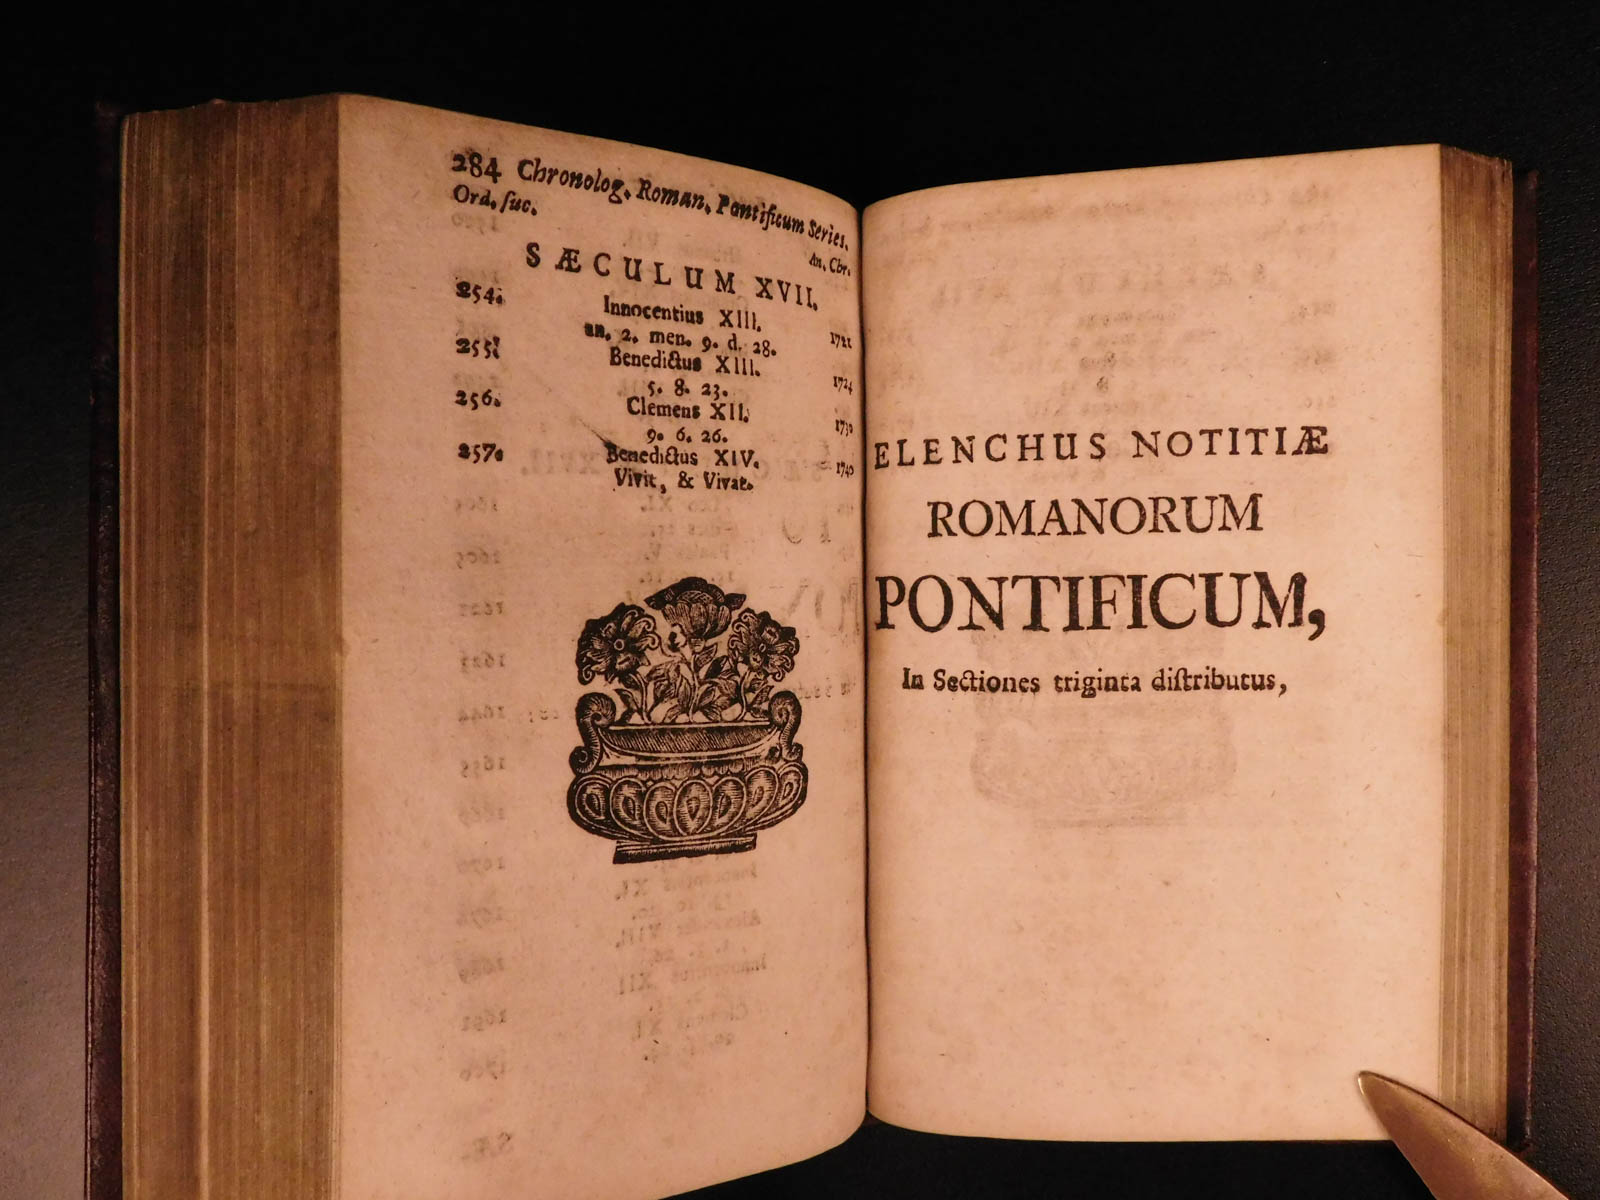 284 Chronolog. Roman. Pontificum Series.
Ord. ſuc. An. Chr.
SÆCULUM XVII.
254. Innocentius XIII. 1721
an. 2. men. 9. d. 28.
255. Benedictus XIII. 1724
5. 8. 23.
256. Clemens XII. 1730
9. 6. 26.
257. Benedictus XIV. 1740
Vivit, & Vivat.
ELENCHUS NOTITIÆ
ROMANORUM
PONTIFICUM,
In Sectiones triginta diſtributus,